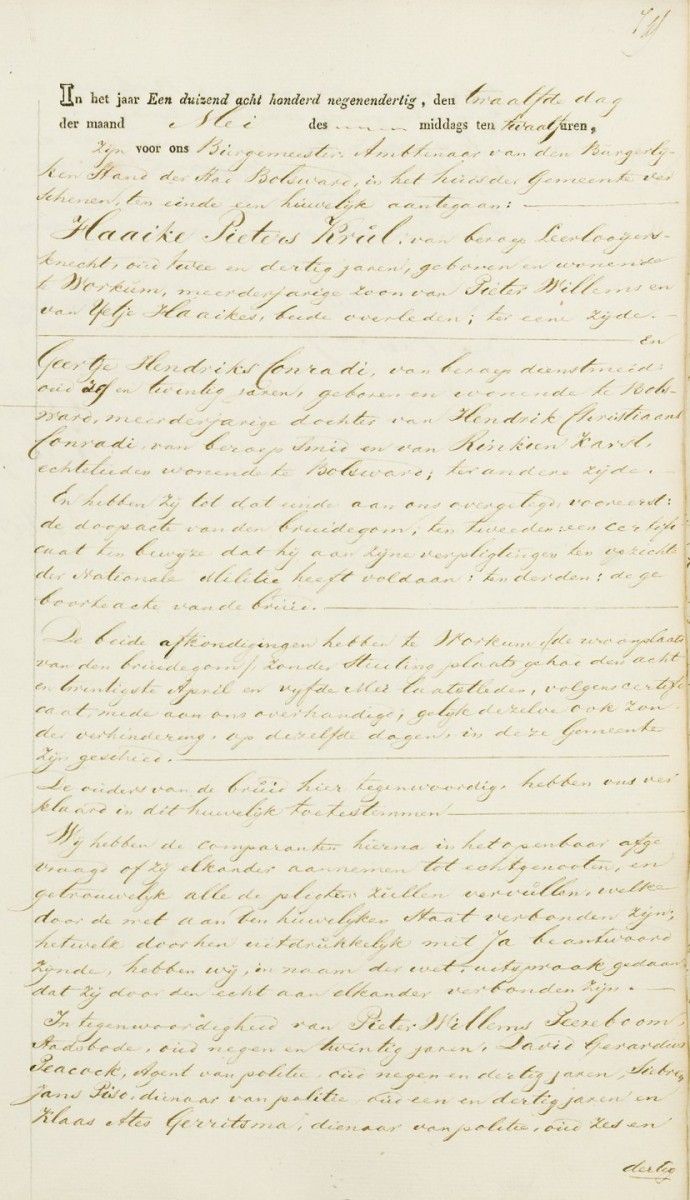 In het jaar Een duizend acht honderd negenendertig, den twaalfde dag
der maand Mei des middags ten twaalf uren,
zijn voor ons Burgemeester Ambtenaar van den Burgerlij-
ken Stand der Stad Bolsward, in het huis der Gemeente ver
schenen, ten einde een huwelijk aantegaan:
Haaike Pieters Krul, van beroep Leerlooijers-
knecht, oud twee en dertig jaren, geboren en wonende
te Workum, meerderjarige zoon van Pieter Willems en
van Yetje Haaikes, beide overleden; ter eene zijde.
En
Geertje Hendriks Conradi, van beroep dienstmeid
oud zes en twintig jaren, geboren en wonende te Bols-
ward, meerderjarige dochter van Hendrik Christiaans
Conradi, van beroep smid en van Rinkien Karst,
echtelieden wonende te Bolsward; ter andere zijde.
En hebben zij tot dat einde aan ons overgelegd, vooreerst:
de doopacte van den bruidegom; ten tweeden: een certifi
caat ten bewyze dat hij aan zijne verpligtingen ten opzichte
der Nationale Militie heeft voldaan: ten derden: de ge
boorteacte van de bruid.
De beide afkondigingen hebben te Workum /:de woonplaats
van den bruidegom:/ zonder stuiting plaats gehad den acht
en twintigste April en vyfde Mei laatstleden, volgens certifi
caat, mede aan ons overhandigd; gelijk dezelve ook zon-
der verhindering, op dezelfde dagen, in deze Gemeente
zijn geschied.
De ouders van de bruid hier tegenwoordig, hebben ons ver
klaard in dit huwelijk toetestemmen
Wij hebben de comparanten hierna in het openbaar afge
vraagd of zij elkander aannemen tot echtgenooten, en
getrouwelijk alle de pligten zullen vervullen, welke
door de wet aan den huwelijken Staat verbonden zijn,
hetwelk door hen uitdrukkelijk met Ja beantwoord
zynde, hebben wij, in naam der wet, uitspraak gedaan
dat zij door den echt aan elkander verbonden zijn.
In tegenwoordigheid van Pieter Willems Peereboom,
Stadsbode, oud negen en twintig jaren, David Gerardus
Peacock, Agent van politie, oud negen en dertig jaren, Siebren
Jans Piso, dienaar van politie, oud een en dertig jaren en
Klaas Ates Gerritsma, dienaar van politie, oud zes en
dertig